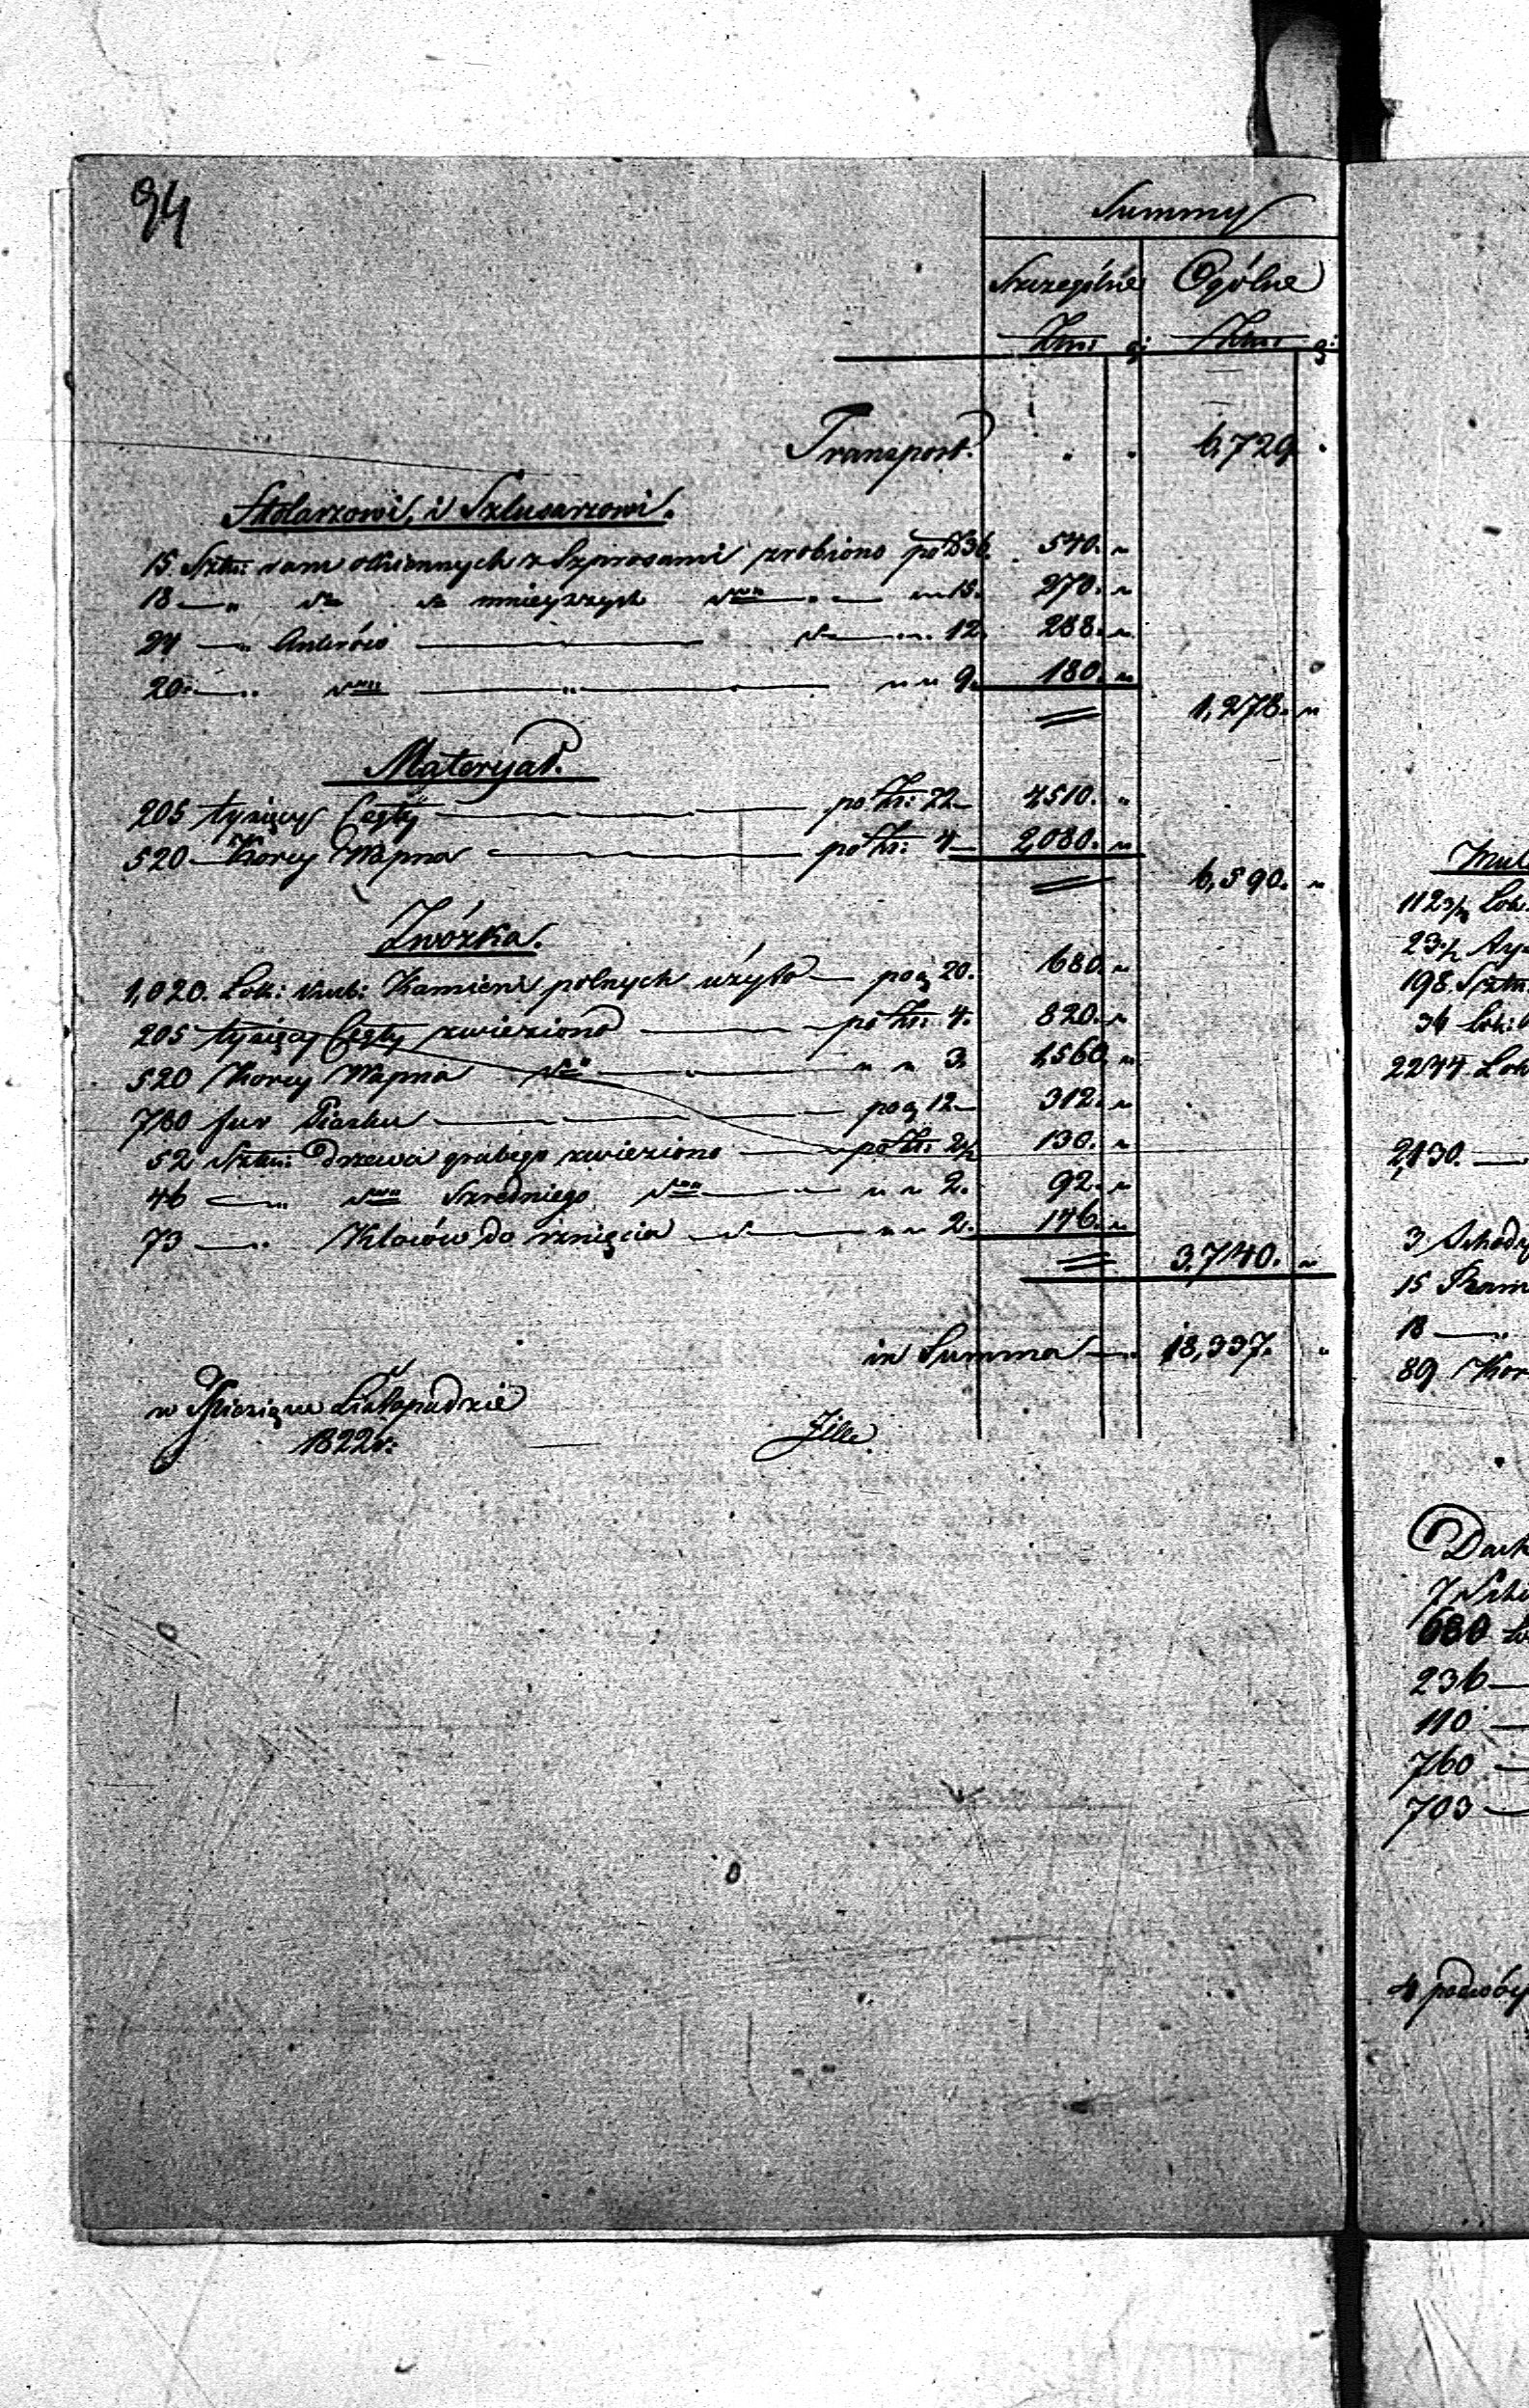 94
Summy
Szczególne Ogólne
Złni: g: Złni: g:
Transport. " " 6,729 "
Stolarzowi, i Szlusarzowi.
15. Sztu: ram okiennych z Szprosami zrobiono po Zł 36. 540. "
18 — " dto dto mnieyszych dtto " — " " 15. 270. "
24 — " Antrów — d — " " 12. 288. "
20 — " dtto — " — " " 9. 180. "
1,278. "
Materyał.
205 tysięcy Cegły — po Zł: 22 — 4510. "
520 — Korcy Wapna — po Zł: 4 — 2080. "
6,590. "
Zwózka.
1,020. Łok: kub: Kamieni polnych użyto — po g 20. 680. "
205 tysięcy Cegły zwieziono — po Zł: 4. 820. "
520 Korcy Wapna dtto — " " 3. 1,560 "
780 fur Piasku — po g 12 — 312. "
52 Sztu: Drzewa grubego zwieziono — po Zł: 2½ 130. "
46 — " dtto Szredniego dtto — " " 2. 92. "
73 — " Kloców do rznięcia d — " " 2. 146. "
3,740. "
in Summa — 18,337. "
w Miesiącu Listopadzie
1822 r:
112 3/4 Łok.
198 Sztu.
36 Łok:
2244 Łok
2,130. —
3 Schody
15 Ram
18 — "
89 Kor
Dach
680 Ło
236 —
110 —
760 —
703 —
4 podwóy